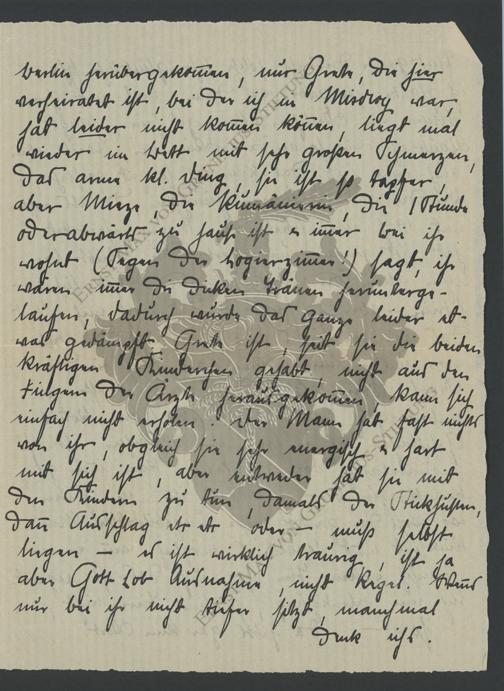 Berlin herübergekom̄en, nur Grete, die hier
verheiratet ist, bei der ich in Misdroy war,
hat leider nicht kom̄en kön̄en, liegt mal
wieder im Bett mit sehr großen Schmerzen,
das arme kl. Ding, sie ist so tapfer,
aber Mieze, die Rumänierin, die 1 Stunde
oderabwärts zu Hause ist u im̄er bei ihr
wohnt (Segen der Logierzim̄er!) sagt, ihr
wären im̄er die dicken Tränen herunterge-
laufen, dadurch wurde das ganze leider et-
was gedämpft. Grete ist, seit sie die beiden
kräftigen Kinderchen gehabt, nicht aus den
Fingern der Ärzte herausgekom̄en, kann sich
einfach nicht erholen. Der Mann hat fast nichts
von ihr, obgleich sie sehr energisch u hart
mit sich ist, aber entweder hat sie mit
den Kindern zu tun, damals der Stickhusten,
dan̄ Ausschlag etc etc oder – muß selbst
liegen – es ist wirklich traurig, ist ja
aber Gott Lob Ausnahme, nicht Regel. Wenns
nur bei ihr nicht tiefer sitzt, manchmal
denk ichs.
ERNST MAX VON GRUNELIUS-STIFTUNG